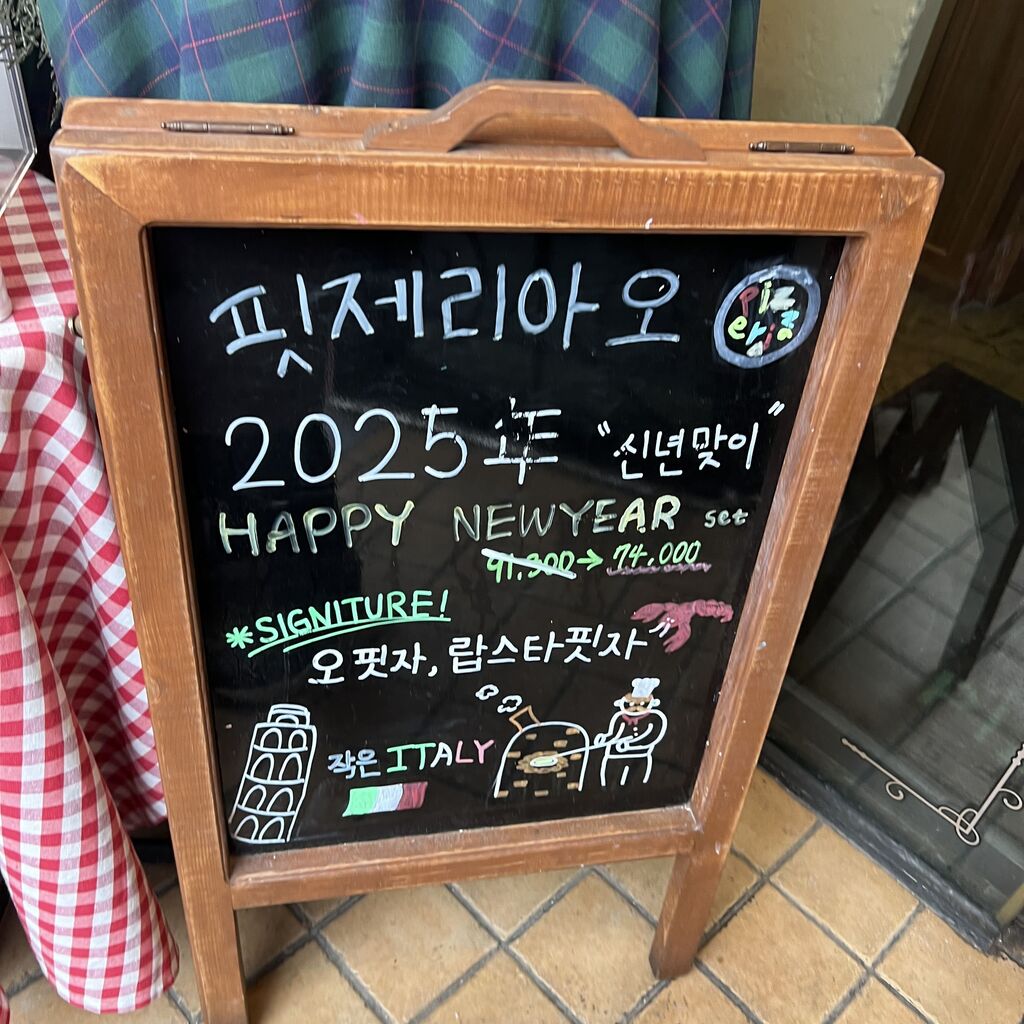 핏제리아 오
Pizzeria
2025年 "신년맞이"
HAPPY NEWYEAR set
91.300→74.000
*SIGNITURE!
오핏자, 랍스타핏자
작은 ITALY